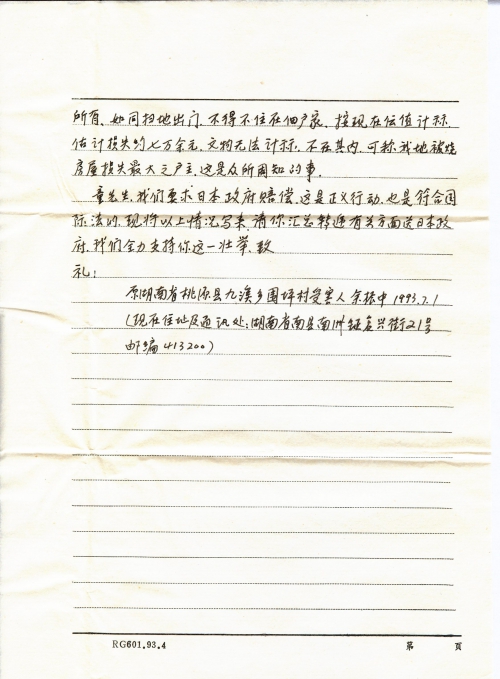 所有、如同扫地出门、不得不住在佃户家、按现在估值计称,
估计损失约七万余元、文物无法计称、不在其内、可称我地被烧
房屋损失最大之户主、这是众所周知的事.
童先生、我们要求日本政府赔偿、这是正义行动、也是符合国
际法的、现将以上情况写来、请你汇总转递有关方面送日本政
府、我们全力支持你这一壮举、致
礼:
原湖南省桃源县九溪乡围坪村受害人 余 中 1993.7.1
(现在住址及通讯处:湖南省南县南洲镇复兴街21号
邮编 413200)
RG601.93.4
第 页